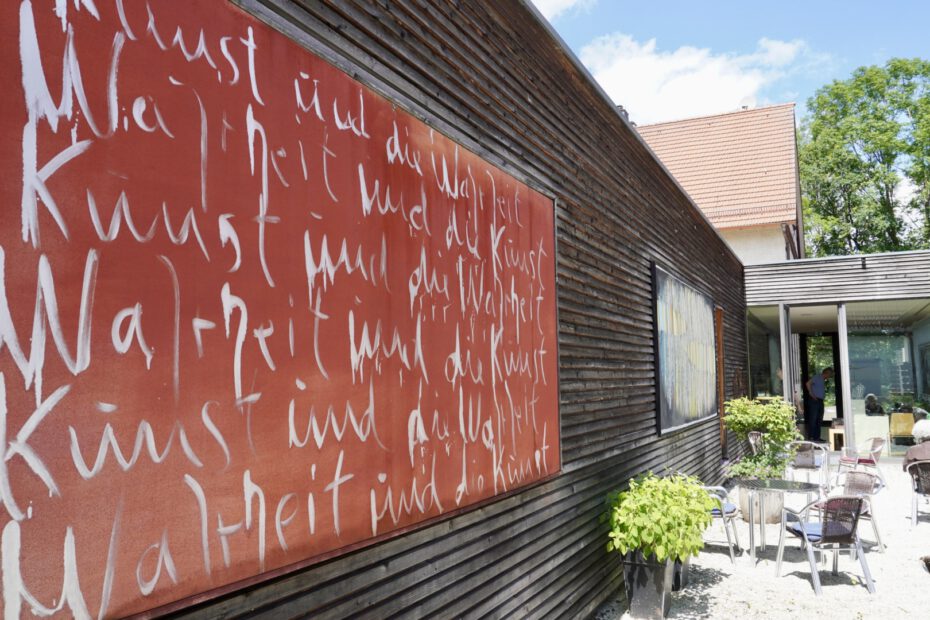 Kunst und die Wahrheit
Wahrheit und die Kunst
Kunst und die Wahrheit
Wahrheit und die Kunst
Kunst und die Wahrheit
Wahrheit und die Kunst